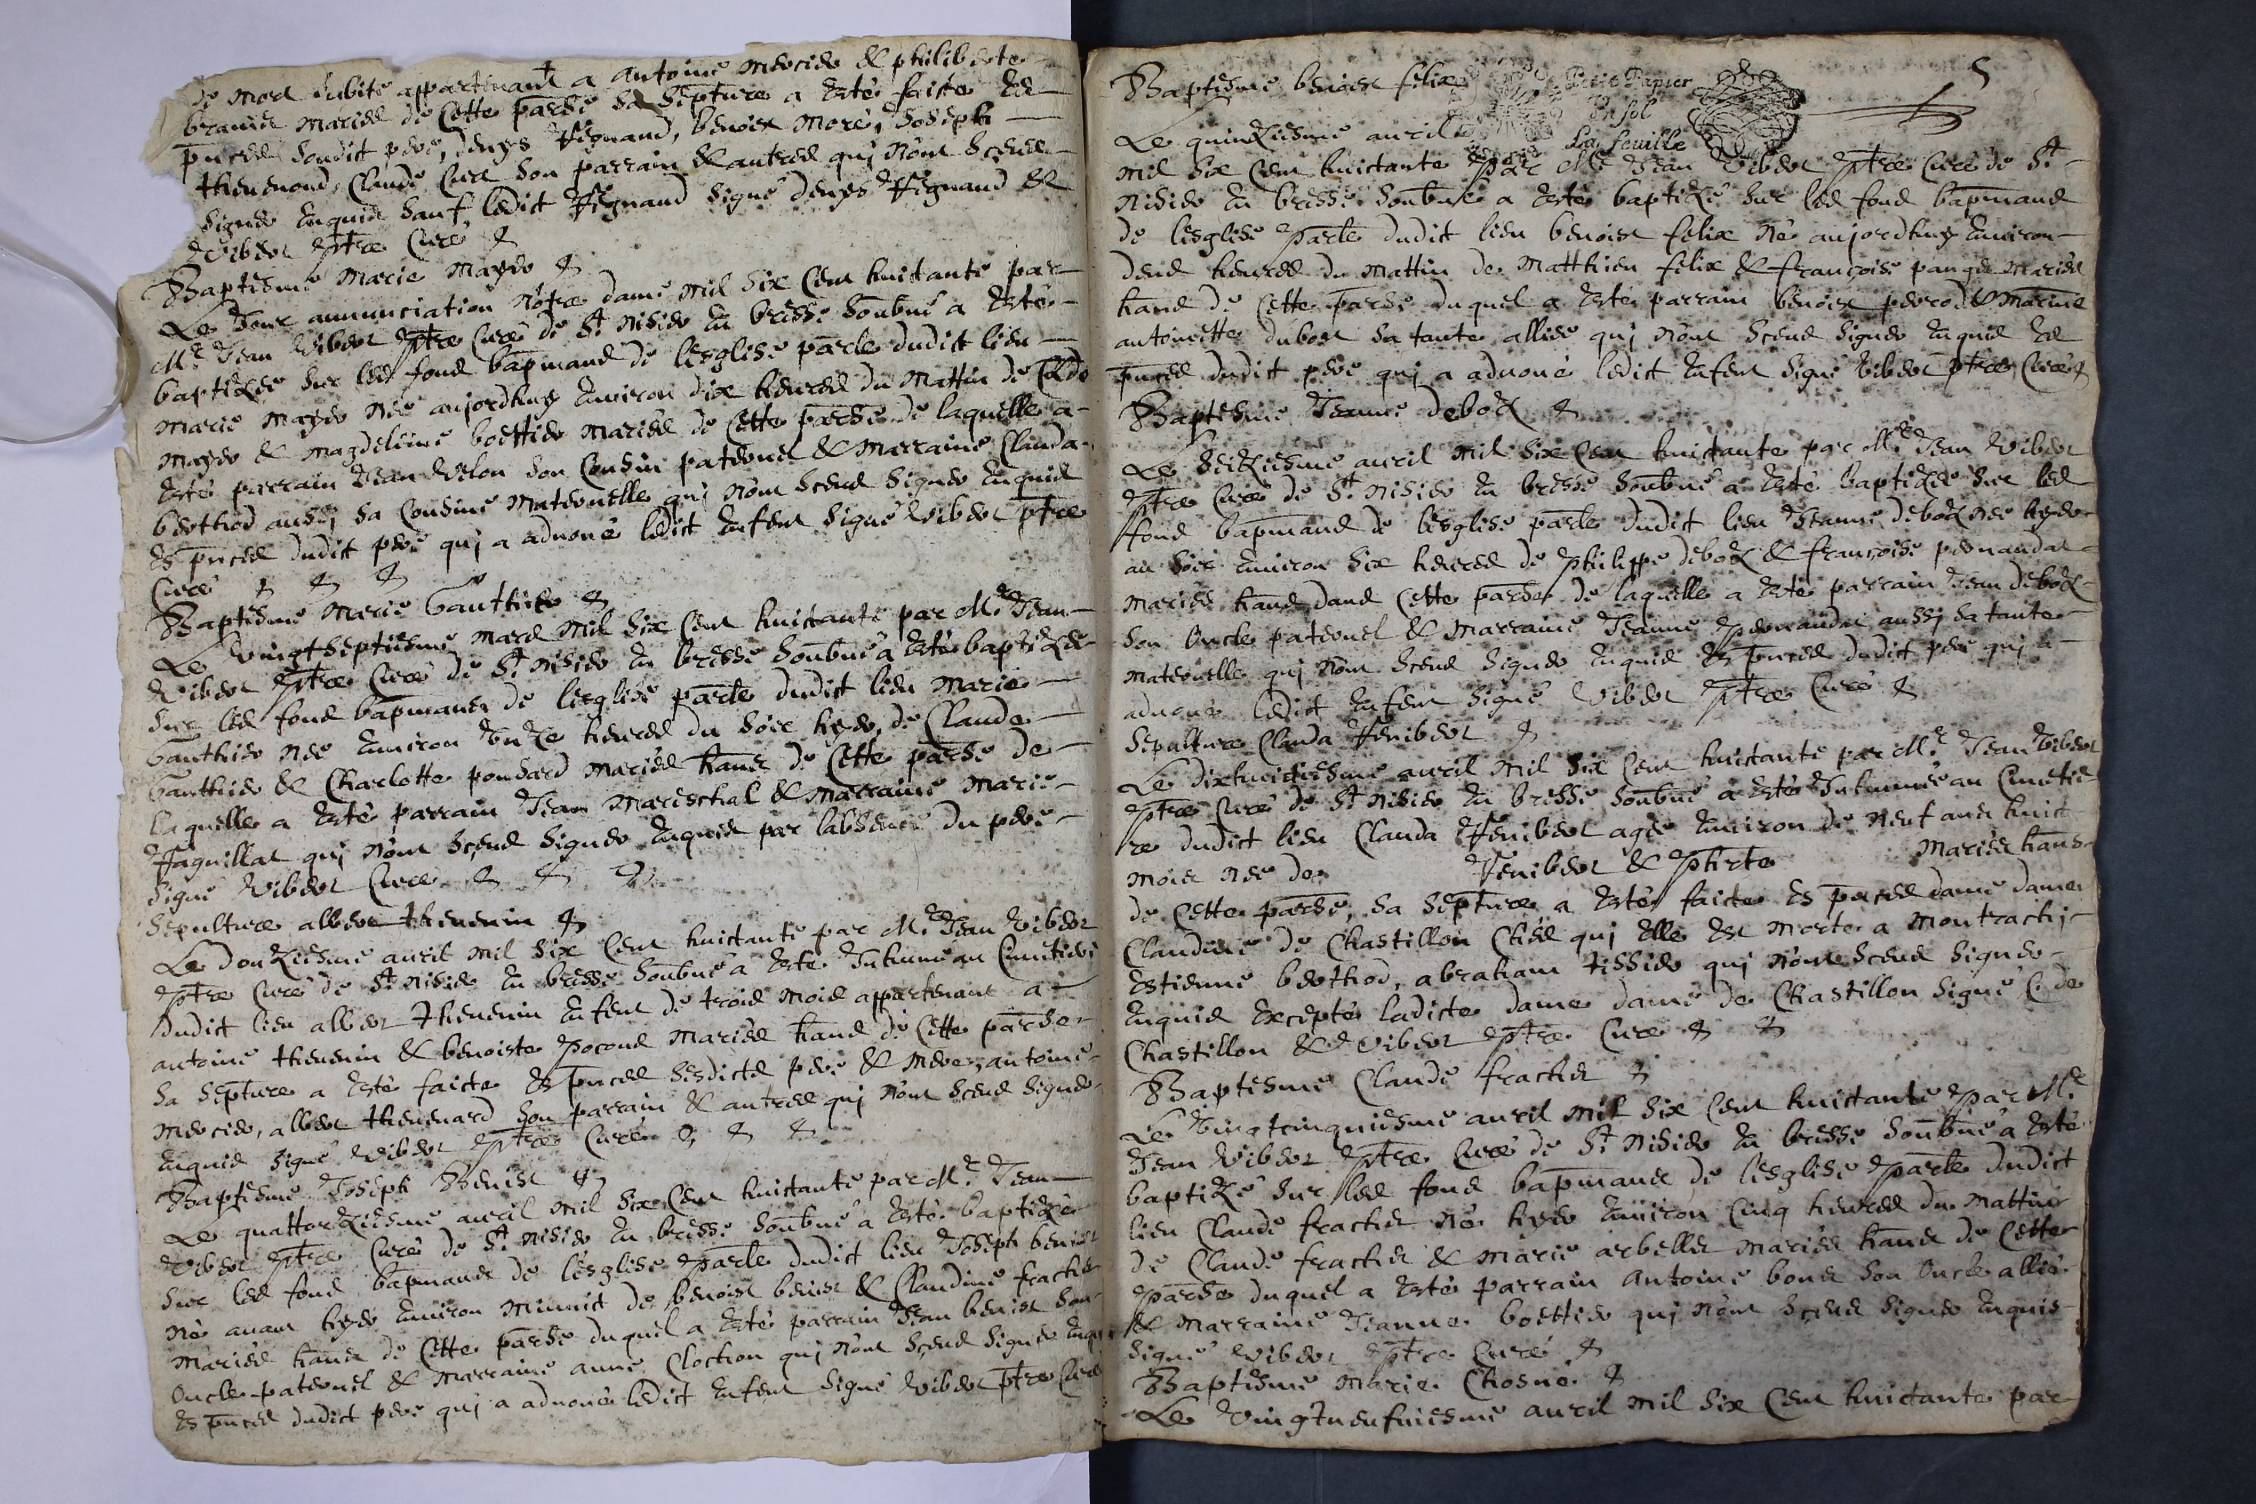 de mort subite appartenant a antoine mercier & philiberte
branier mariés de cette parse sa septure a esté faicte es
pnces dudict pere, denys Feignand, benoist moré, Joseph
thevenond, Claude Curt son parrain & autres qui n'ont sceus
signer enquis sauf ledict Feignand signé denys Feignand &
Vibert ptre Curé
Baptesme marie mayer
Le Jour annunciation nótre dame mil six cent huictante par
Mre Jean Vibert ptre Curé de St nisier en bresse soubné a esté
baptizée sur les fond bapmaux de lesglise parle dudict lieu
marie mayer née aujordhuy environ dix heures du mattin de Clde
mayer & magdeleine boettier mariés de cette parse de laquelle a
esté parrain Jean Velon son Cousin paternel & marraine Clauda
berthod aussy sa Cousine maternelle qui n'ont sceus signer enquis
es pnces dudict pere qui a advoué ledict enfent signé Vibert ptre
Curé
Baptesme marie Gauthier
Le vingtseptiesme mars mil six cent huictante par Mre Jean
Vibert ptre Curé de St nisier en bresse soubné a esté baptizée
sur les fond bapmaux de lesglise parle dudict lieu marie
Gauthier née environ onze heures du soir hyer, de Claude
Gauthier & Charlotte pouhard mariés hans de cette parse de
laquelle a esté parrain Jean mareschal & marraine marie
Faguillat qui n'ont sceus signer enquis par labsence du pere
signé Vibert Curé
Sepulture albert thevenin
Le douziesme avril mil six cent huictante par Mre Jean Vibert
ptre Curé de St nisier en bresse soubné a esté Inhumé au Cimetiere
dudict lieu albert thevenin enfent de trois mois appartenant a
antoine thevenin & benoiste pocond mariés hans de cette parse
sa sepulture a esté faicte es pnces sesdicts pere & mere, antoine
mercier, albert thevenard son parrain & autres qui n'ont sceus signer
enquis signé Vibert ptre Curé
Baptesme Joseph Benist
Le quattorziesme avril mil six cent huictante par Mre Jean
Vibert ptre Curé de St nisier en bresse soubné a esté baptizé
sur les fond bapmaux de lesglise parle dudict lieu Joseph benist
né avant hyer environ minuict de benoist benist & Claudine frachet
mariés hans de cette parse duquel a esté parrain Jean benist son
Oncle paternel & marraine anne Clochon qui n'ont sceus signer enquis
es pnces dudict pere qui a advoué ledict enfent signé Vibert ptre Curé
Baptesme benoist felix
Petit Papier
In fol
La feuille
5
Le quinziesme avril
mil six cent huictante par Mre Jean Vibert ptre Curé de St
nisier en bresse soubné a esté baptizé sur les fond bapmaux
de lesglise parle dudict lieu benoist felix né aujordhuy environ
deux heures du mattin de matthieu felix & françoise pauget mariés
hans de cette parse duquel a esté parrain benoist perrod & marine
antoinette dubost sa tante alliée qui n'ont sceus signer enquis es
pnces dudict pere qui a advoué ledict enfent signé Vibert ptre Curé
Baptesme Jeanne deboz
Le seiziesme avril mil six cent huictante par Mre Jean Vibert
ptre Curé de St nisier en bresse soubné a esté baptizée sur les
fond bapmaux de lesglise parle dudict lieu Jeanne deboz née hyer
au soir environ six heures de philippe deboz & françoise pernaudat
mariés hans dans cette parse, de laquelle a esté parrain Jean deboz
son Oncle paternel & marraine Jeanne pernaudat aussy sa tante
maternelle qui n'ont sceus signer enquis es pnces dudict pere qui a
advoué ledict enfent signé Vibert ptre Curé
Sepulture Clauda Fenibert
Le dixhuictiesme avril mil six cent huictante par Mre Jean Vibert
ptre Curé de St nisier en bresse soubné a esté Inhumée au Cimetie
re dudict lieu Clauda Fenibert agée environ de neuf ans huict
mois née de Fenibert & phirte mariés hans
de cette parse, sa septure a esté faicte es pnces dame dame
Claudine de Chastillon Chés qui elle est morte a montrachy
Estienne berthod, abraham tissier qui n'ont sceus signer
enquis excepté ladicte dame dame de Chastillon signé C. de
Chastillon & Vibert ptre Curé
Baptesme Claude frachet
Le vingtcinquiesme avril mil six cent huictante par Mre
Jean Vibert ptre Curé de St nisier en bresse soubné a esté
baptizé sur les fond bapmaux de lesglise parle dudict
lieu Claude frachet né hyer environ cinq heures du mattin
de Claude frachet & marie arbellet mariés hans de cette
parse duquel a esté parrain antoine bond son Oncle allié
& marraine Jeanne boettier qui n'ont sceus signer enquis
signé Vibert ptre Curé
Baptesme marie Chosne
Le vingtneufviesme avril mil six cent huictante par